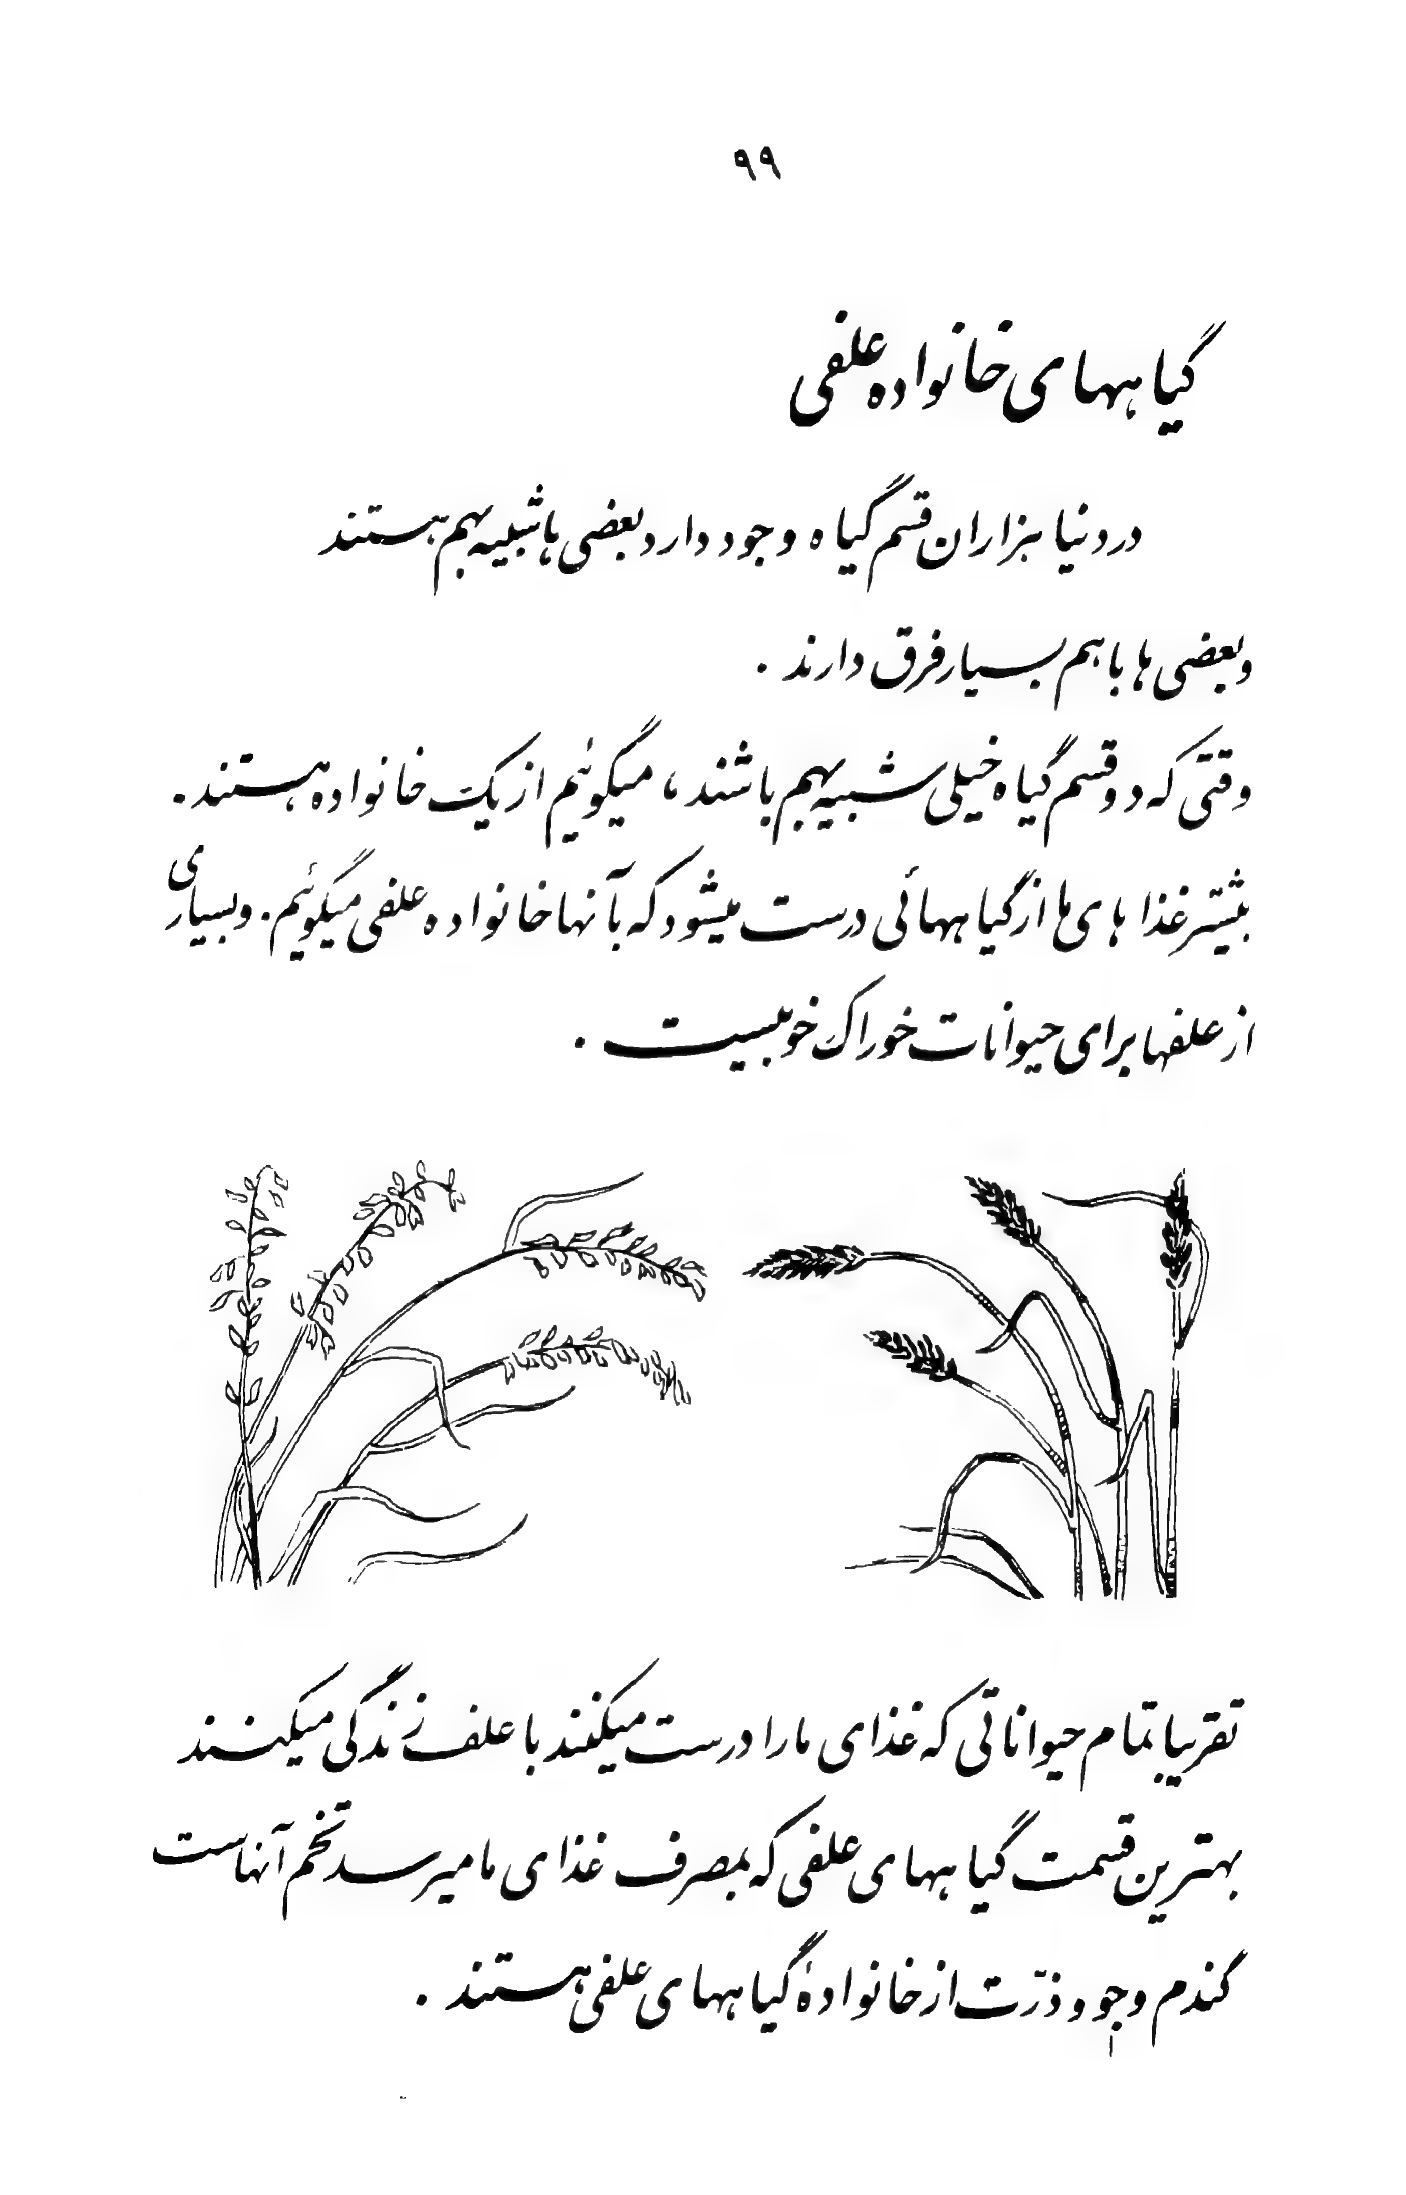 ۹۹
گیاههای خانواده علفی
در دنیا هزاران قسم گیاه وجود دارد بعضی ها شبیه بهم هستند
و بعضی ها با هم بسیار فرق دارند .
وقتی که دو قسم گیاه خیلی شبیه بهم باشند ، میگوئیم از یک خانواده هستند .
بیشتر غذا های ما از گیاههائی درست میشود که بآنها خانواده علفی میگوئیم . و بسیاری
از علفها برای حیوانات خوراک خوبیست .
تقریبا تمام حیواناتی که غذای ما را درست میکنند با علف زندگی میکنند
بهترین قسمت گیاههای علفی که بمصرف غذای ما میرسد تخم آنهاست
گندم و جو و ذرّت از خانوادهٔ گیاههای علفی هستند .